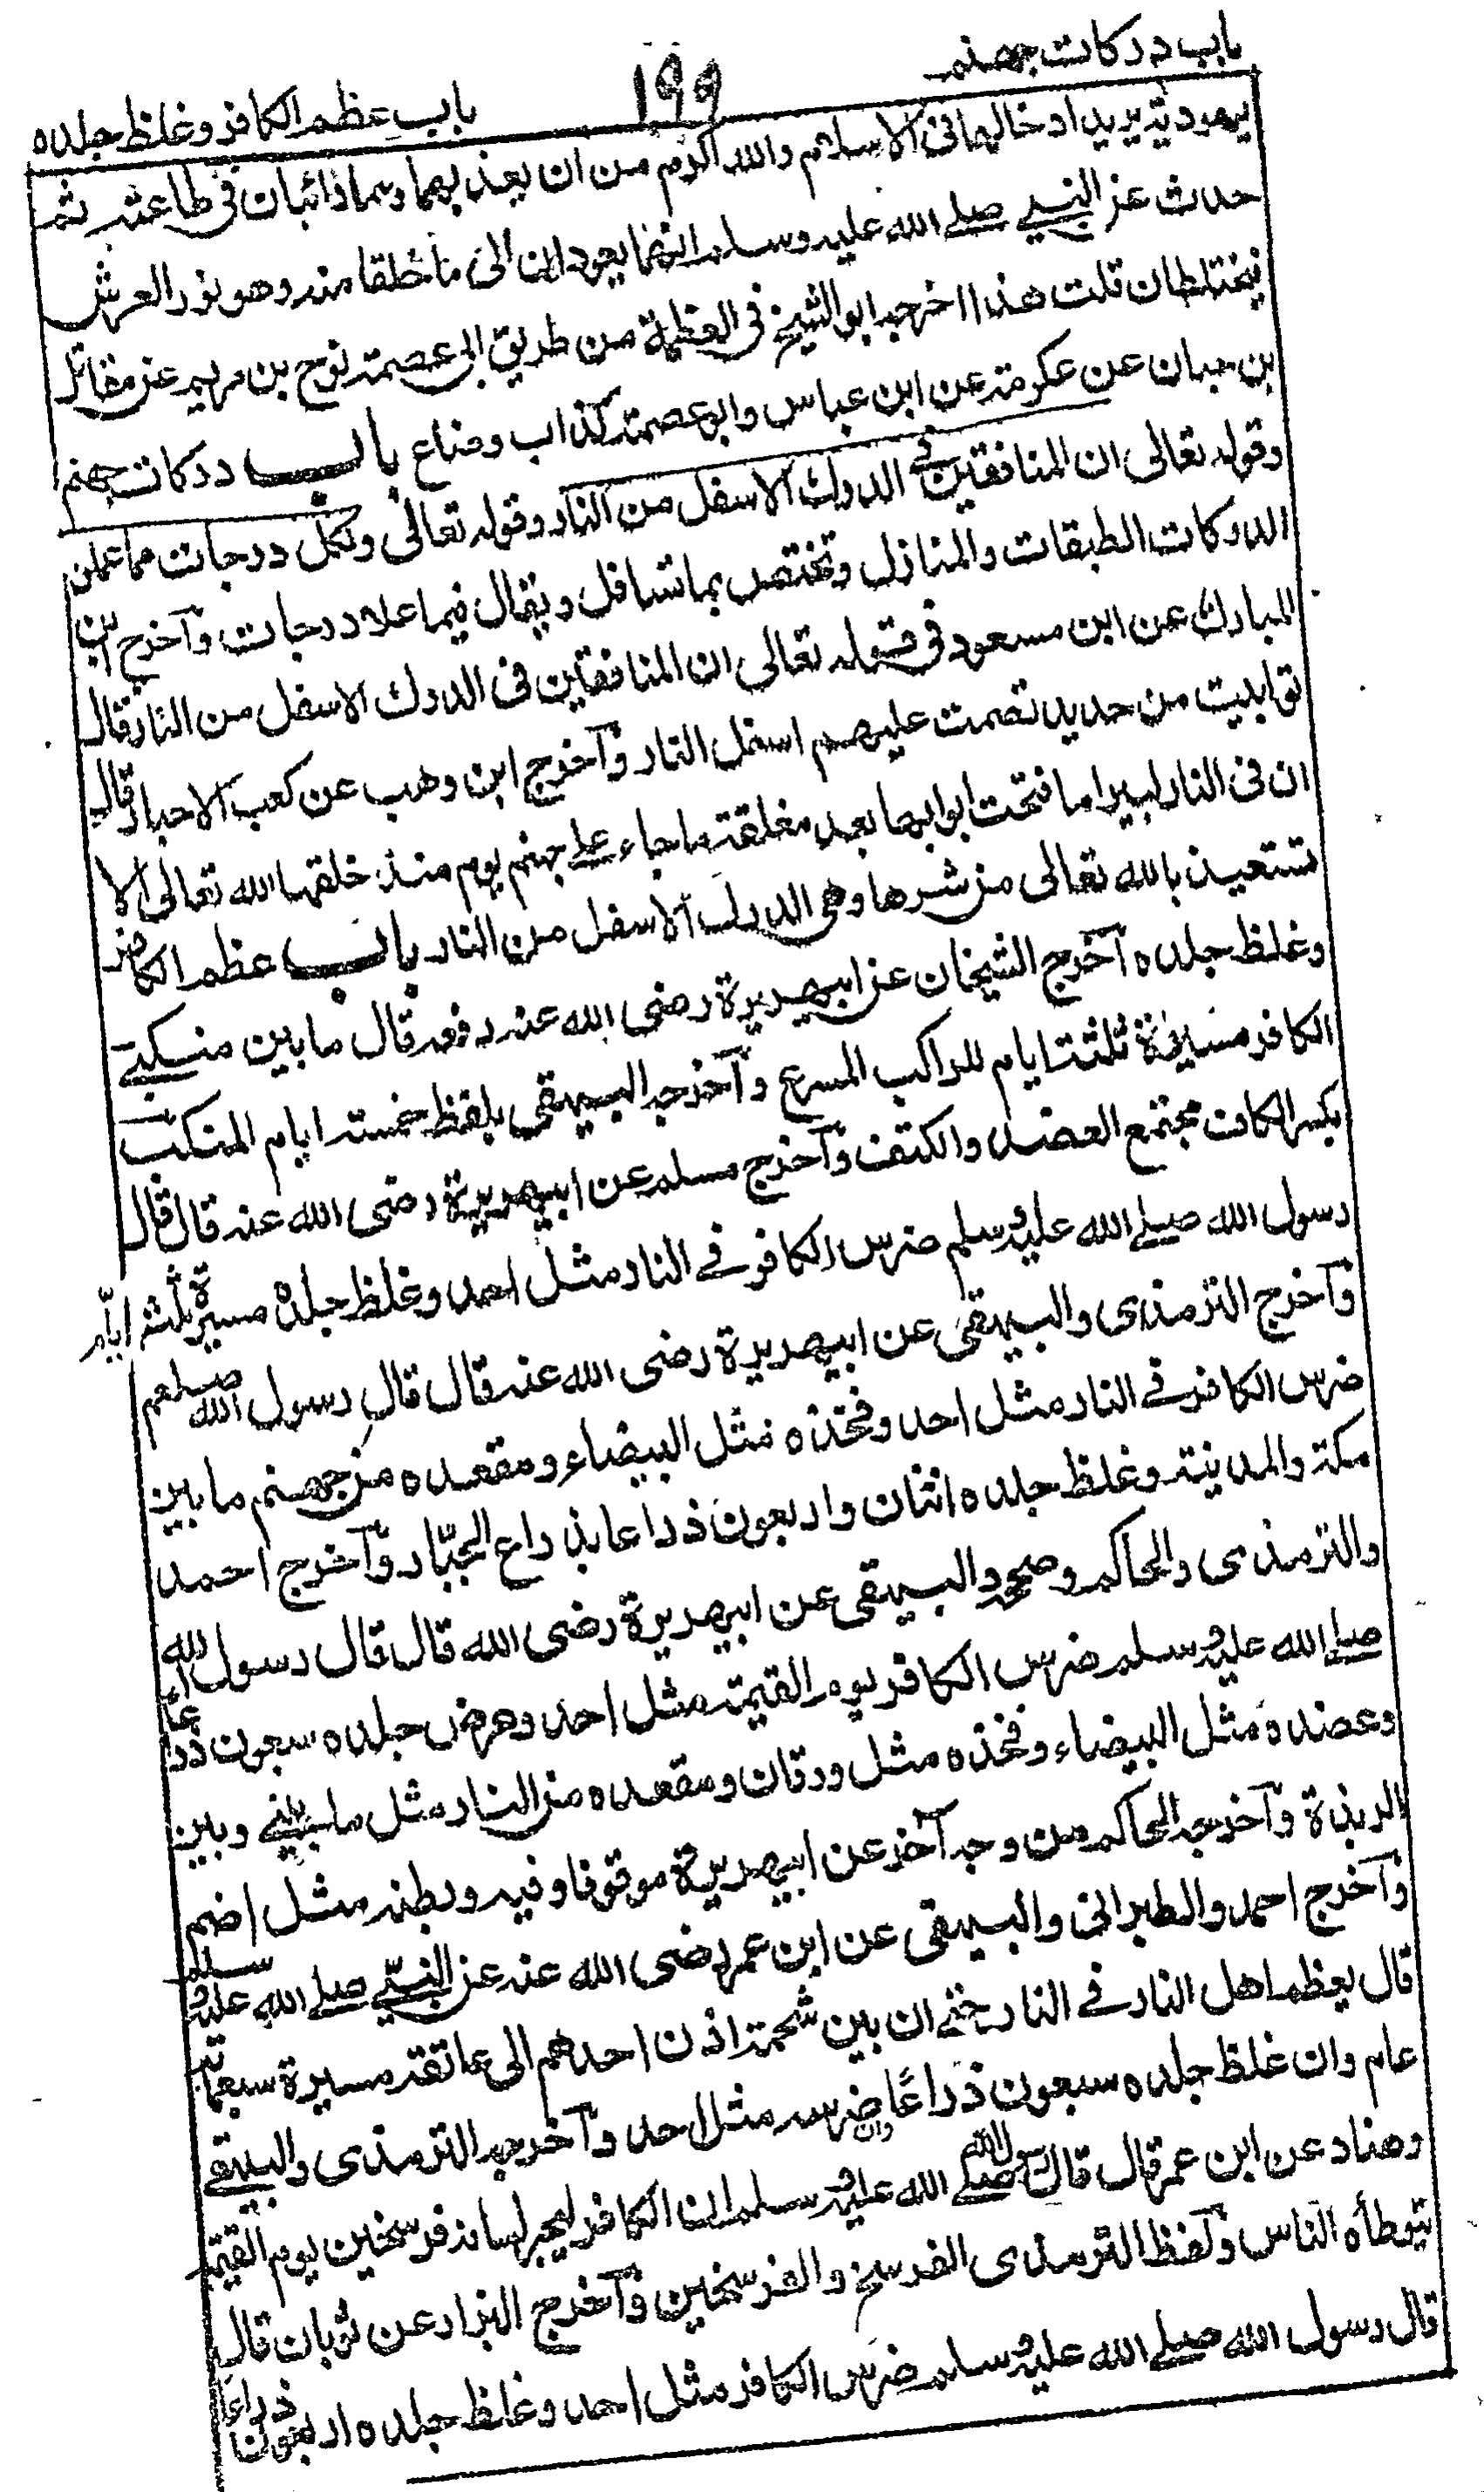 باب دركات جهنم
١٩٩
باب عظم الكافر وغلظ جلده
يهودية يريد ادخالها فى الاسلام والله اكرم من ان يعذبهما وهما دائبان فى طاعته ثم
حدث عن النبي صلے الله عليه وسلم انهما يعودان الى ما خلقا منه وهو نور العرش
فيختلطان قلت هذا اخرجه ابو الشيخ فى العظمة من طريق ابى عصمة نوح بن مريم عن مقاتل
بن حبان عن عكرمة عن ابن عباس وابو عصمة كذاب وضاع باب دركات جهنم
وقوله تعالى ان المنافقين فے الدرك الاسفل من النار وقوله تعالى ولكل درجات مما عملوا
الدركات الطبقات والمنازل وتختص بما تسافل ويقال فيما علا درجات وآخرج ابن
المبارك عن ابن مسعود فى قوله تعالى ان المنافقين فى الدرك الاسفل من النار قال
توابيت من حديد تصمت عليهم اسفل النار وآخرج ابن وهب عن كعب الاحبار قال
ان فى النار لبيرا ما فتحت ابوابها بعد مغلقة ما جاء علے جهنم يوم منذ خلقها الله تعالى الا
تستعيذ بالله تعالى من شرها وهى الدرك الاسفل من النار باب عظم الكافر
وغلظ جلده آخرج الشيخان عن ابيهريرة رضى الله عنه رفعه قال ما بين منكبے
الكافر مسيرة ثلثة ايام للراكب المسرع وآخرجه البيهقى بلفظ خمسة ايام المنكب
بكسر الكاف مجتمع العضد والكتف وآخرج مسلم عن ابيهريرة رضى الله عنه قال قال
رسول الله صلے الله عليه وسلم ضرس الكافر فے النار مثل احد وغلظ جلده مسيرة ثلثة ايام
وآخرج الترمذى والبيهقى عن ابيهريرة رضى الله عنه قال قال رسول الله صلعم
ضرس الكافر فے النار مثل احد وفخذه مثل البيضاء ومقعده من جهنم ما بين
مكة والمدينة وغلظ جلده اثنان واربعون ذراعا بذراع الجبّار وآخرج احمد
والترمذى والحاكم وصححه والبيهقى عن ابيهريرة رضى الله قال قال رسول الله
صلے الله عليه وسلم ضرس الكافر يوم القيمة مثل احد وعرض جلده سبعون ذراعا
وعضده مثل البيضاء وفخذه مثل ورقان ومقعده من النار مثل ما بينے وبين
الربذة وآخرجه الحاكم من وجه آخر عن ابيهريرة موقوفا وفيه وبطنه مثل اضم
وآخرج احمد والطبرانى والبيهقى عن ابن عمر رضى الله عنه عن النبيّ صلے الله عليه وسلم
قال يعظم اهل النار فے النار حتے ان بين شحمة اذن احدهم الى عاتقه مسيرة سبعمائة
عام وان غلظ جلده سبعون ذراعًا وان ضرسه مثل احد وآخرجه الترمذى والبيهقے
وهناد عن ابن عمر قال قال رسول الله صلے الله عليه وسلم ان الكافر ليجر لسانه فرسخين يوم القيمة
يتوطأه الناس ولفظ الترمذى الفرسخ والفرسخين وآخرج البزار عن ثوبان قال
قال رسول الله صلے الله عليه وسلم ضرس الكافر مثل احد وغلظ جلده اربعون ذراعًا